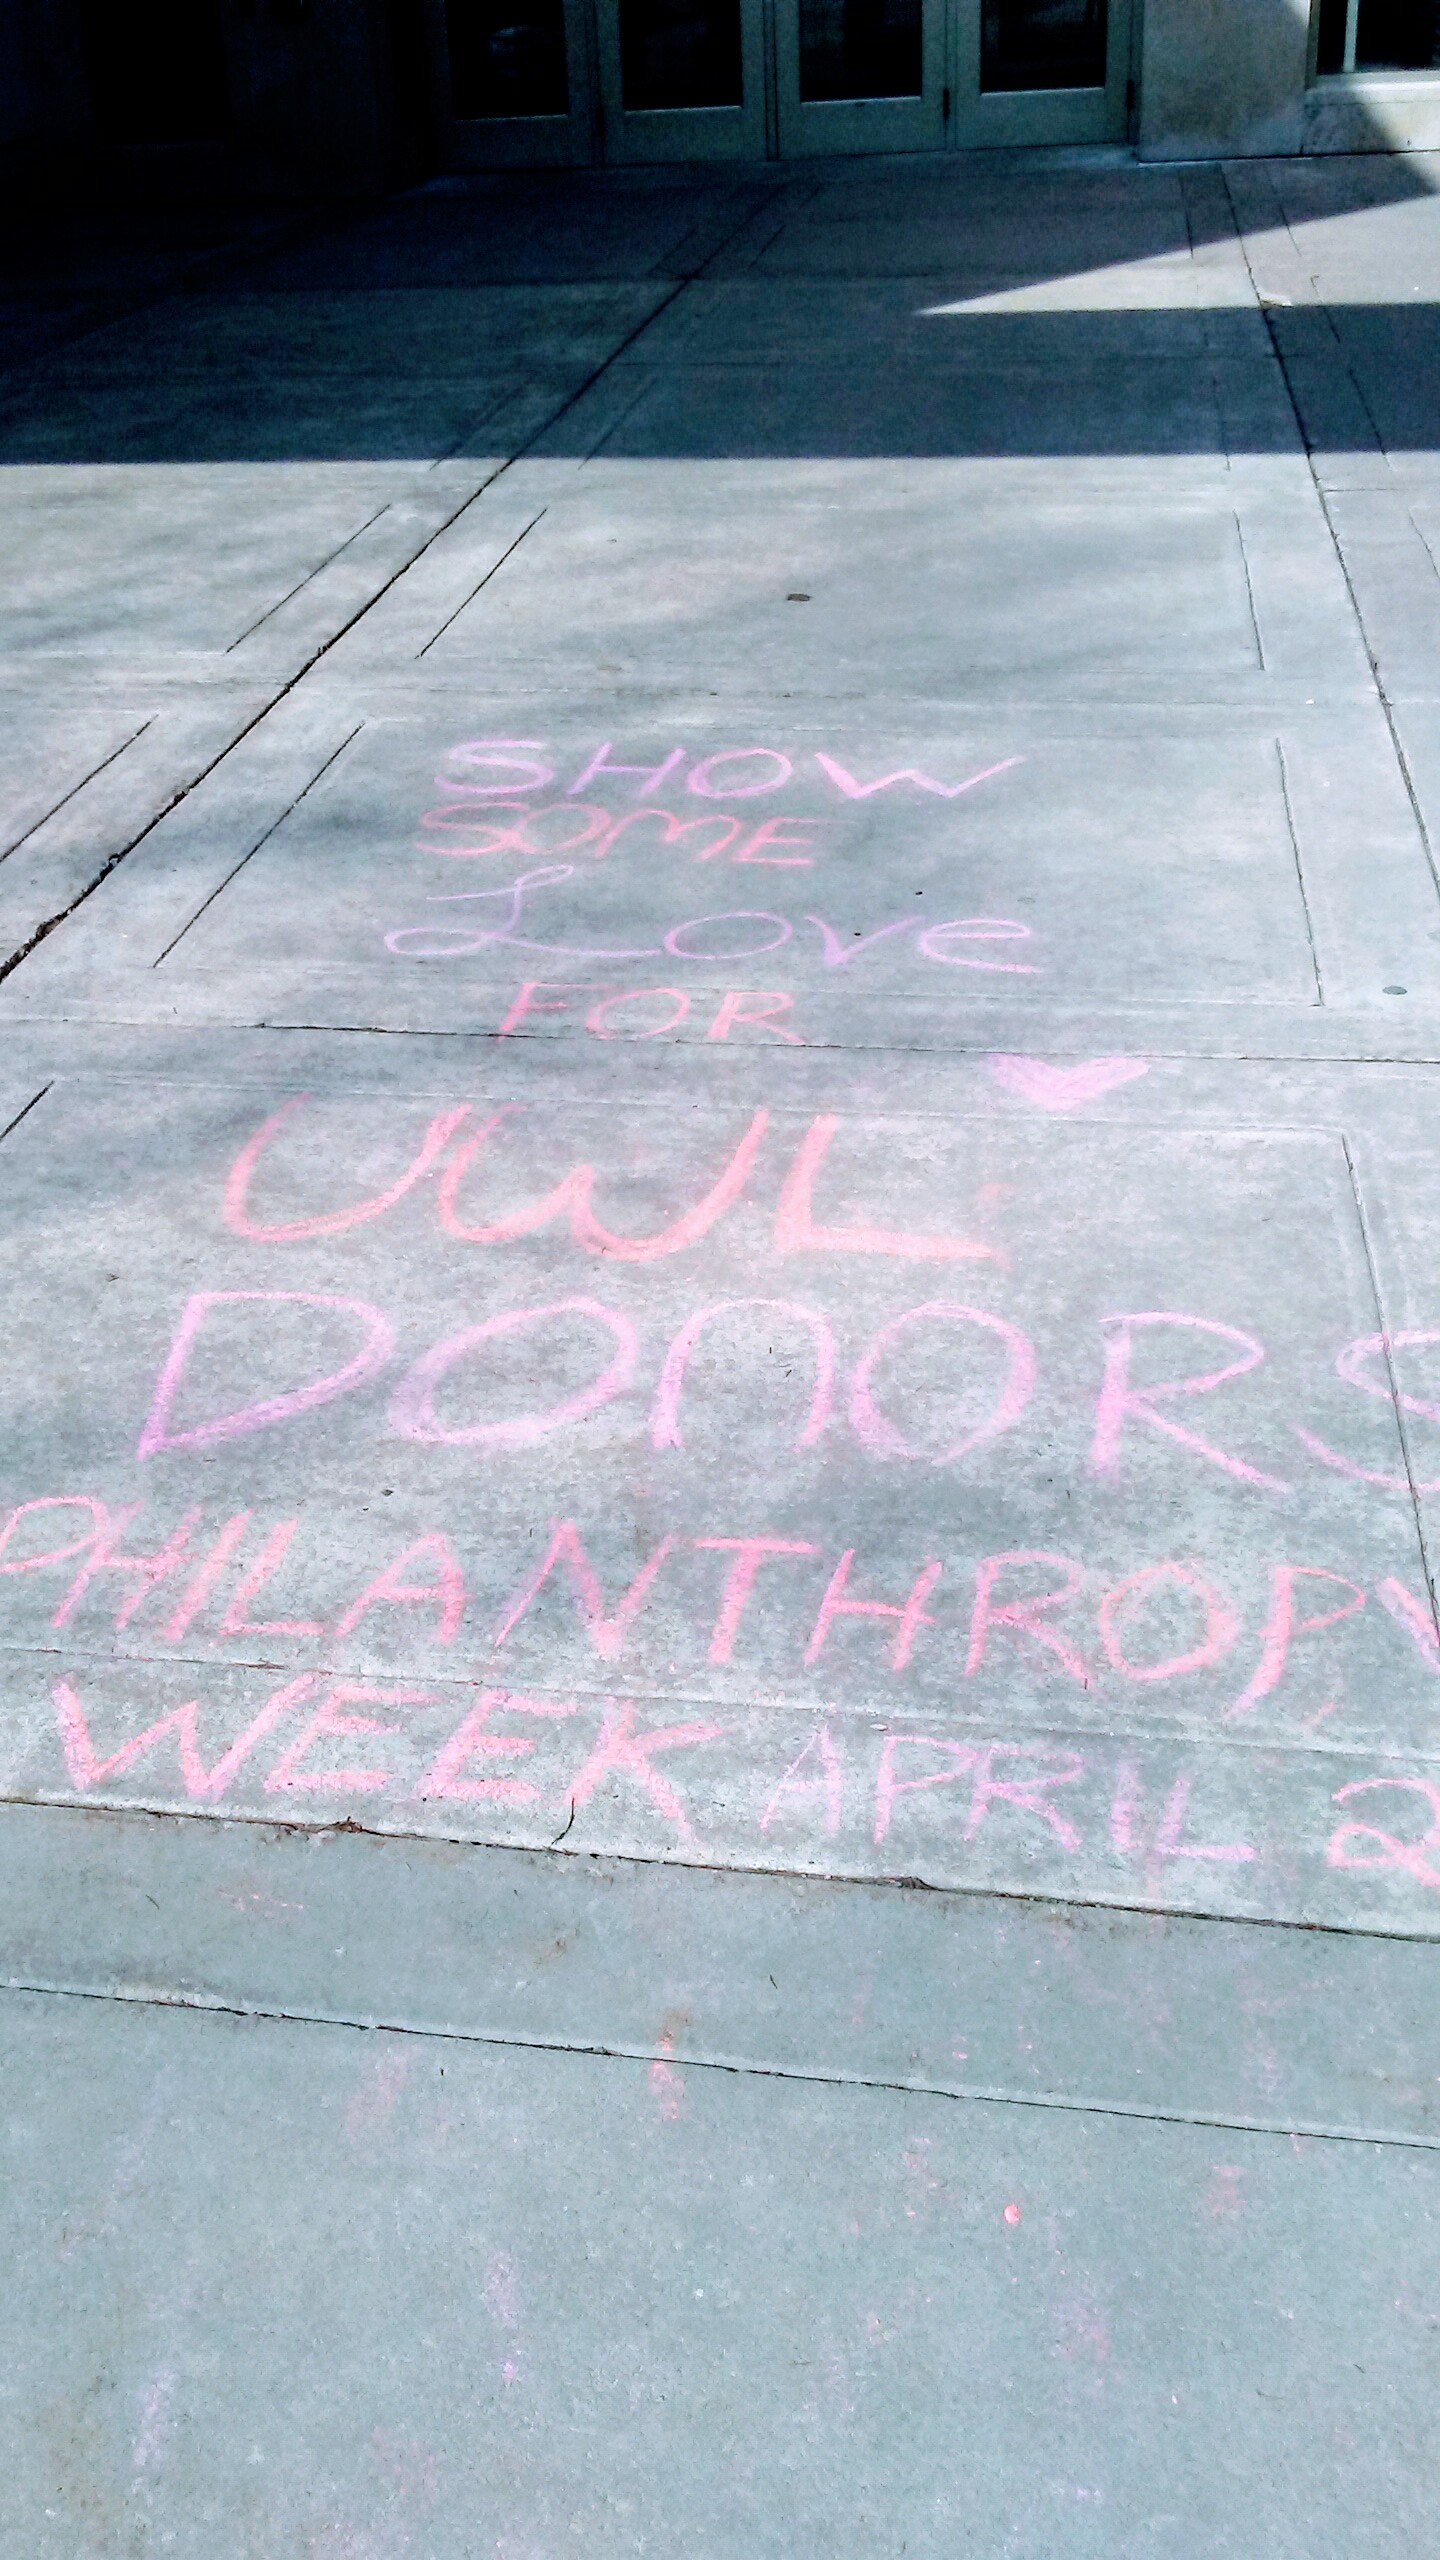 SHOW
SOME
Love
FOR
UWL
DONORS
PHILANTHROPY
WEEK APRIL 2